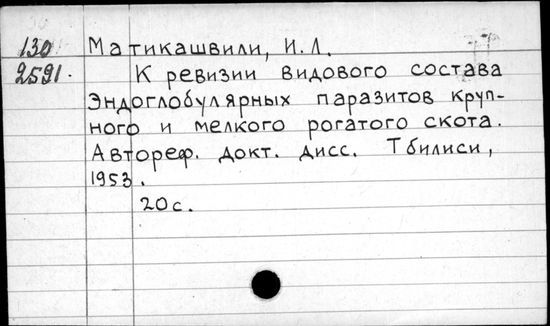 130 Матикашвили, И.Л.
2591. К ревизии видового состава
Эндоглобулярных паразитов круп-
ного и мелкого рогатого скота.
Автореф. докт. дисс. Тбилиси,
1953.
20с.